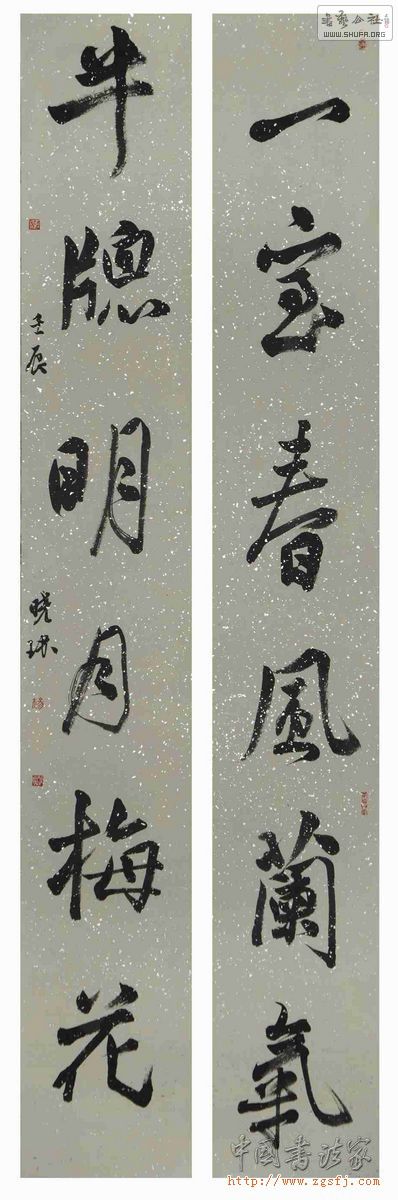 書藝公社
WWW.SHUFA.ORG
一室春風蘭氣
半牕明月梅花
壬辰
晓
中国書法家
http://www.zgsfj.com